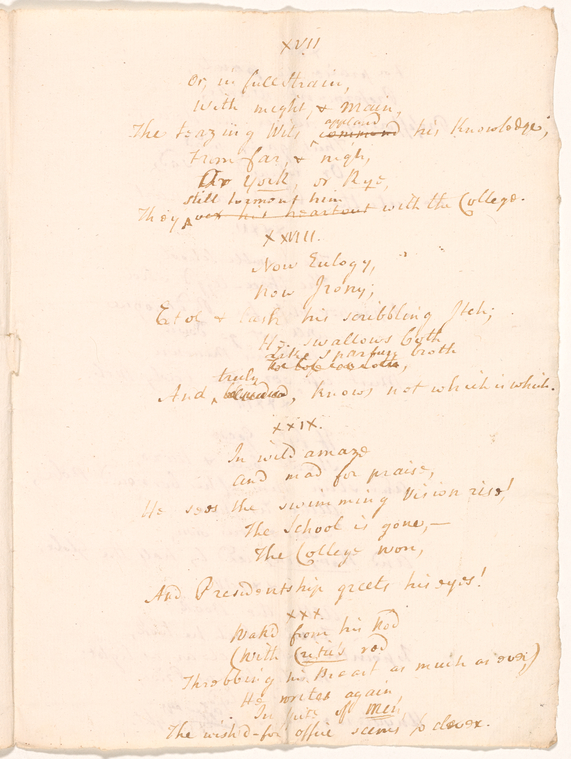 XVII
Or, in full strain,
With might, & main,
applaud
The teazing Wits command his Knowledge;
From far, & nigh,
Or York, or Rye,
still torment him
They vex his heart out with the College.
XXVIII.
Now Eulogy,
Now Irony;
Extol & lash his scribbling Itch;
He swallows both
Like
broth
truly
And, knows not which is which.
XXIX.
In wild amaze
and mad for praise,
He sees the swimming Vision rise!
The School is gone,—
The College won,
And Presidentship greets his eyes!
XXX.
Wak'd from his Nod
(With Critic's rod
Throbbing his Breast as much as ever)
He writes again,
In spite of Men,
The wish'd-for office seems so clever.